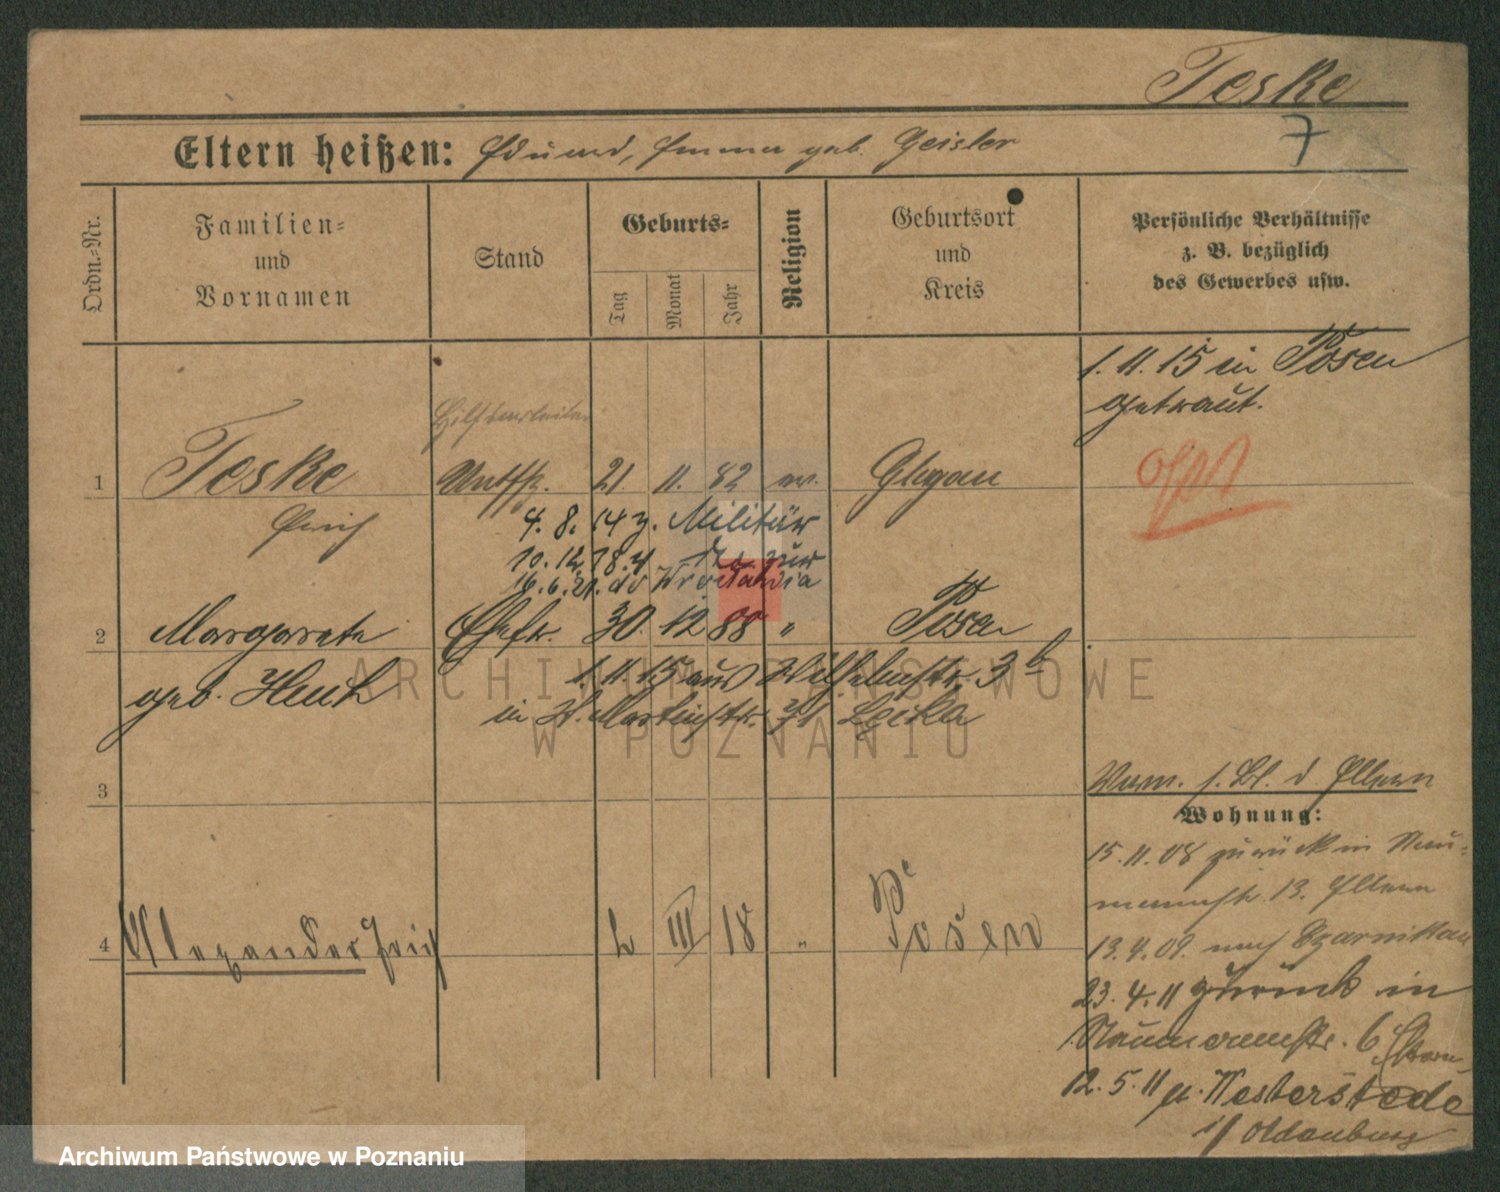 Teske
7
Eltern heißen: Eduard, Emma geb. Geisler
Ordn.-Nr.
Familien-
und
Vornamen
Stand
Geburts-
Tag
Monat
Jahr
Religion
Geburtsort
und
Kreis
Persönliche Verhältnisse
z. B. bezüglich
des Gewerbes usw.
1. 11. 15 in Posen
getraut.
1 Teske 21. 11. 82 ev. Glogau
Erich
4. 8. 14 z. Militär
10. 12. 18. zur
16. 6. 21.
2 Margarete Ehefr. 30. 12 88 " Posen
geb.
1. 11. 15 aus Wilhelmstr. 3b
in St. Martinstr.
ARCHIWUM PAŃSTWOWE
W POZNANIU
3
4 Alexander Erich 2 III 18 " Posen
Vorm. s. Bl. d. Eltern
Wohnung:
15. 11. 08 zurück in Nau-
mannstr. 13. Eltern
13. 4. 09. nach Czarnikau
23. 4. 11 zurück in
Naumannstr. 6 Eltern
12. 5. 11 n. Westerstede
i/ Oldenburg
Archiwum Państwowe w Poznaniu